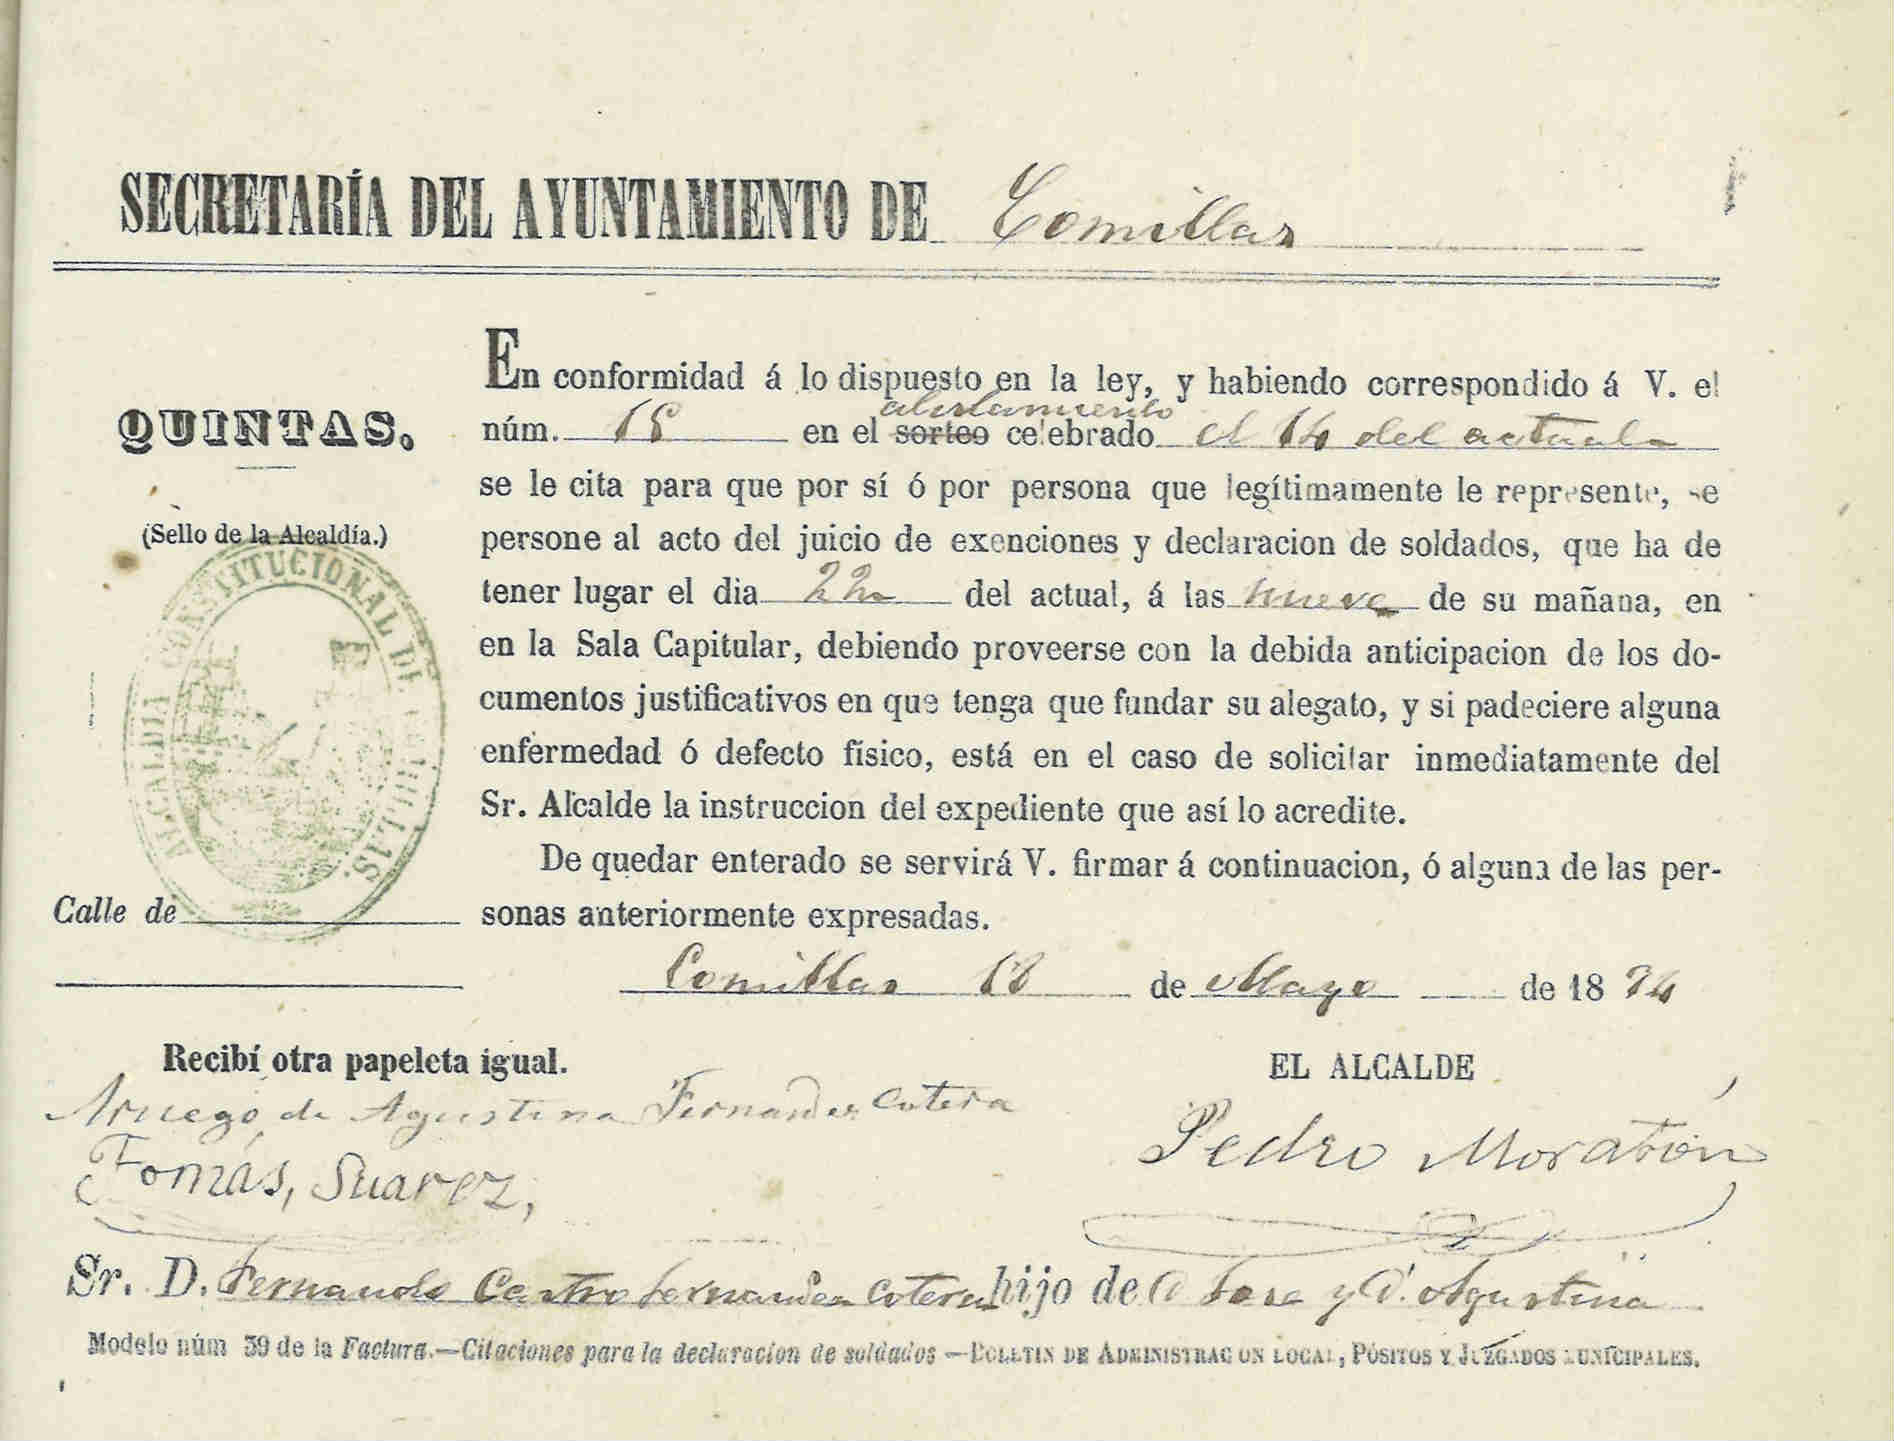 SECRETARÍA DEL AYUNTAMIENTO DE Comillas
QUINTAS.
(Sello de la Alcaldía.)
ALCALDIA CONSTITUCIONAL DE COMILLAS.
Calle de
En conformidad á lo dispuesto en la ley, y habiendo correspondido á V. el
alistamiento
núm. 15 en el sorteo celebrado el 14 del actual
se le cita para que por sí ó por persona que legítimamente le represente, se
persone al acto del juicio de exenciones y declaracion de soldados, que ha de
tener lugar el dia 22 del actual, á las nueve de su mañana, en
en la Sala Capitular, debiendo proveerse con la debida anticipacion de los do-
cumentos justificativos en que tenga que fundar su alegato, y si padeciere alguna
enfermedad ó defecto físico, está en el caso de solicitar inmediatamente del
Sr. Alcalde la instruccion del expediente que así lo acredite.
De quedar enterado se servirá V. firmar á continuacion, ó alguna de las per-
sonas anteriormente expresadas.
Comillas 18 de Mayo de 1874
Recibí otra papeleta igual.
Aruego de Agustina Fernandez Cotera
Tomás, Suarez,
EL ALCALDE
Pedro Moratón
Sr. D. Fernando Castro Fernandez Cotera hijo de D Jose y Dª. Agustina
Modelo núm 39 de la Factura.—Citaciones para la declaracion de soldados —BOLETIN DE ADMINISTRACION LOCAL, PÓSITOS Y JUZGADOS MUNICIPALES.